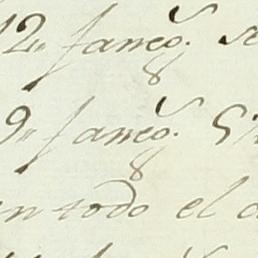 12„ faneg.s
9„ faneg.s 5
en todo el